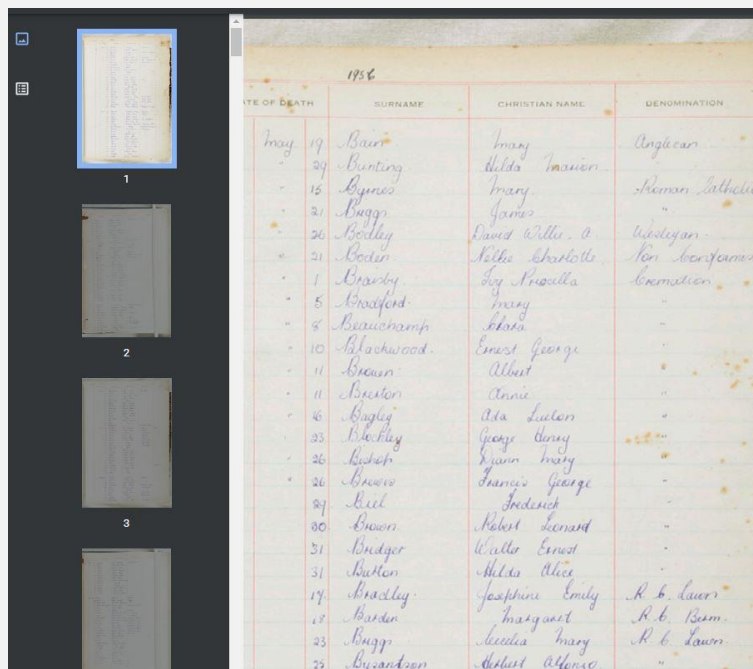 1956
TE OF DEATH SURNAME CHRISTIAN NAME DENOMINATION
May 19 Bain Mary Anglican
" 24 Bunting Hilda Marion
" 15 Byrnes Mary Roman Catholic
" 21 Briggs James "
" 26 Bodley David Willie. A. Wesleyan
" 21 Boden Nellie Charlotte Non Conformis
" 1 Bransby Ivy Priscilla Cremation
" 5 Bradford Mary "
" 8 Beauchamp Clara "
" 10 Blackwood Ernest George
" 11 Brown Albert "
11 Brexton Annie "
" 16 Bagley Ada "
" 23 Blockley George Henry "
" 26 Bishop Mary "
" 26 Francis George
29 Biel Frederick "
30 Brown Robert Leonard "
31 Bridger Walter Ernest "
31 Burton Hilda Alice "
17 Bradley Josephine Emily R. C. Lawn
Barden Margaret R. C. Berm.
23 Briggs Cecelia Mary R. C. Lawn
Herbert "
1
2
3